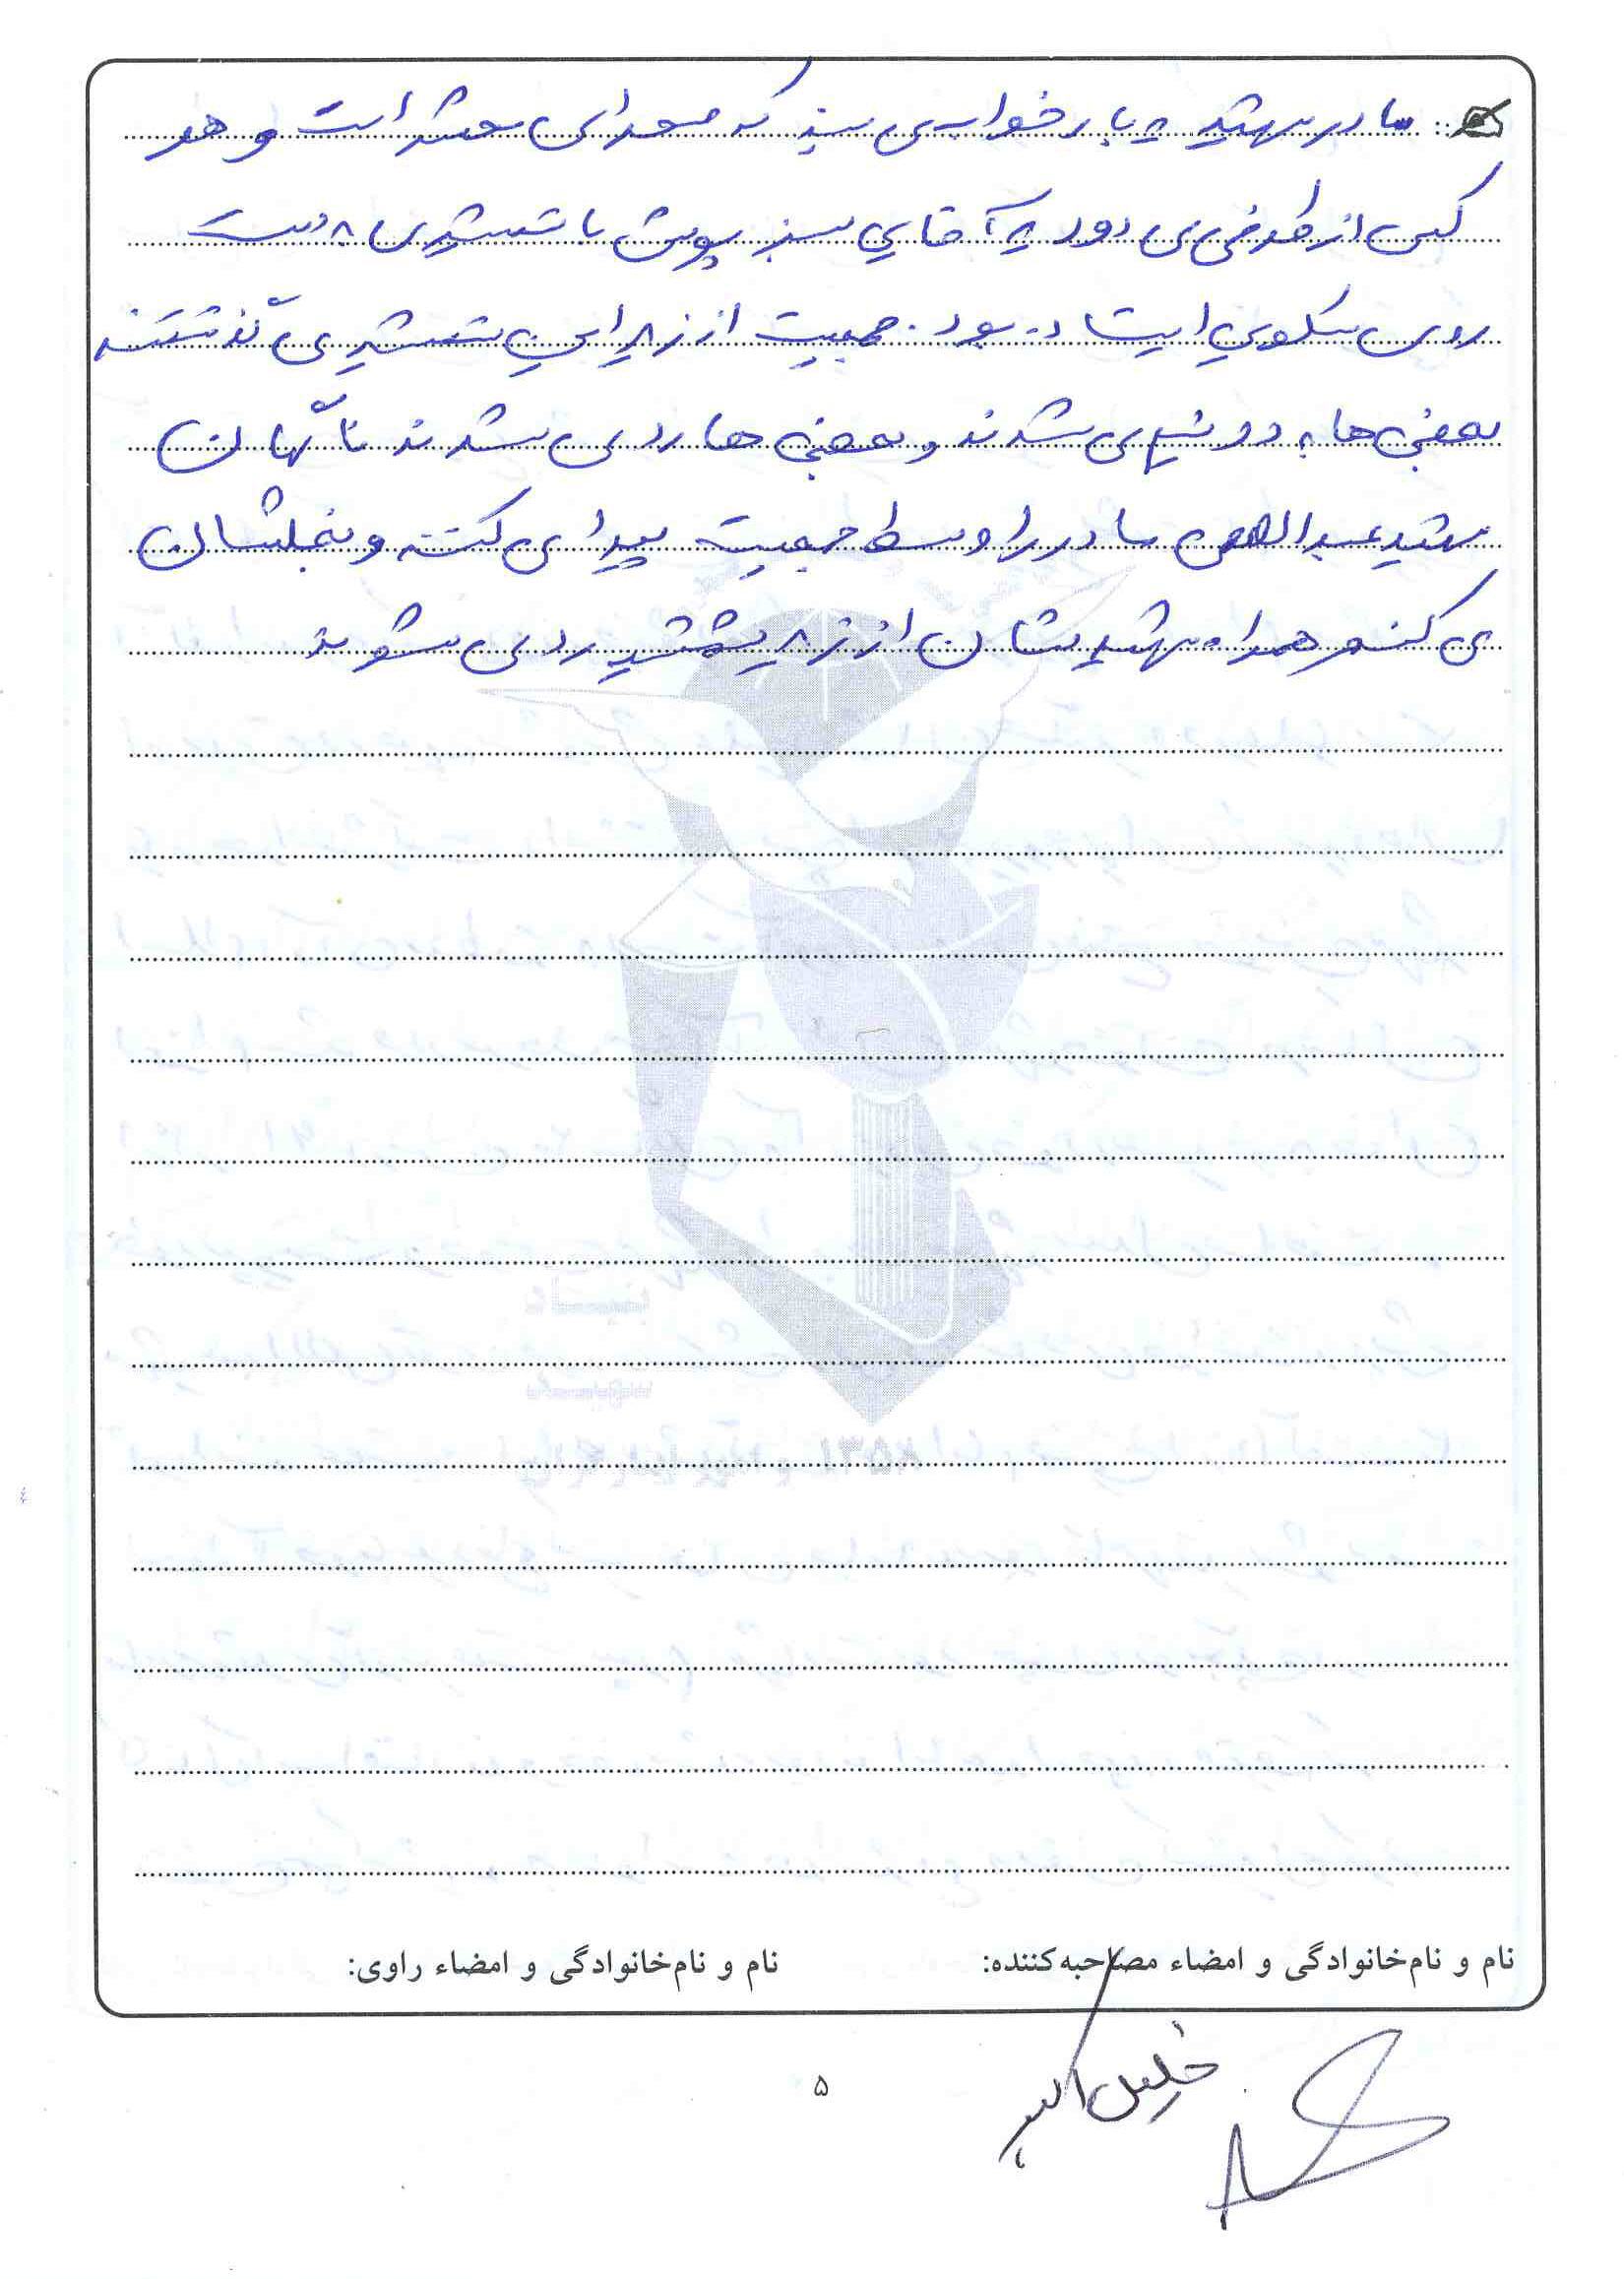 مادر شهید یه بار خواب می بیند که صحرای محشر است و هر
کس از طرفی می دود یه آقای سبز پوش با شمشیری به دست
روی سکویی ایستاده بود. جمعیت از زیر این شمشیر می گذشتند
بعضی ها به دو نیم می شدند و بعضی ها رد می شدند ناگهان
شهید عبداللهی مادر را وسط جمعیت پیدا می کند و بغلشان
می کند و همراه شهیدشان از زیر شمشیر رد می شوند
بنیاد
شهید
و امور ایثارگران
۱۳۵۸
نام و نام‌خانوادگی و امضاء مصاحبه‌کننده:
نام و نام‌خانوادگی و امضاء راوی:
خلیل اکبر
۵